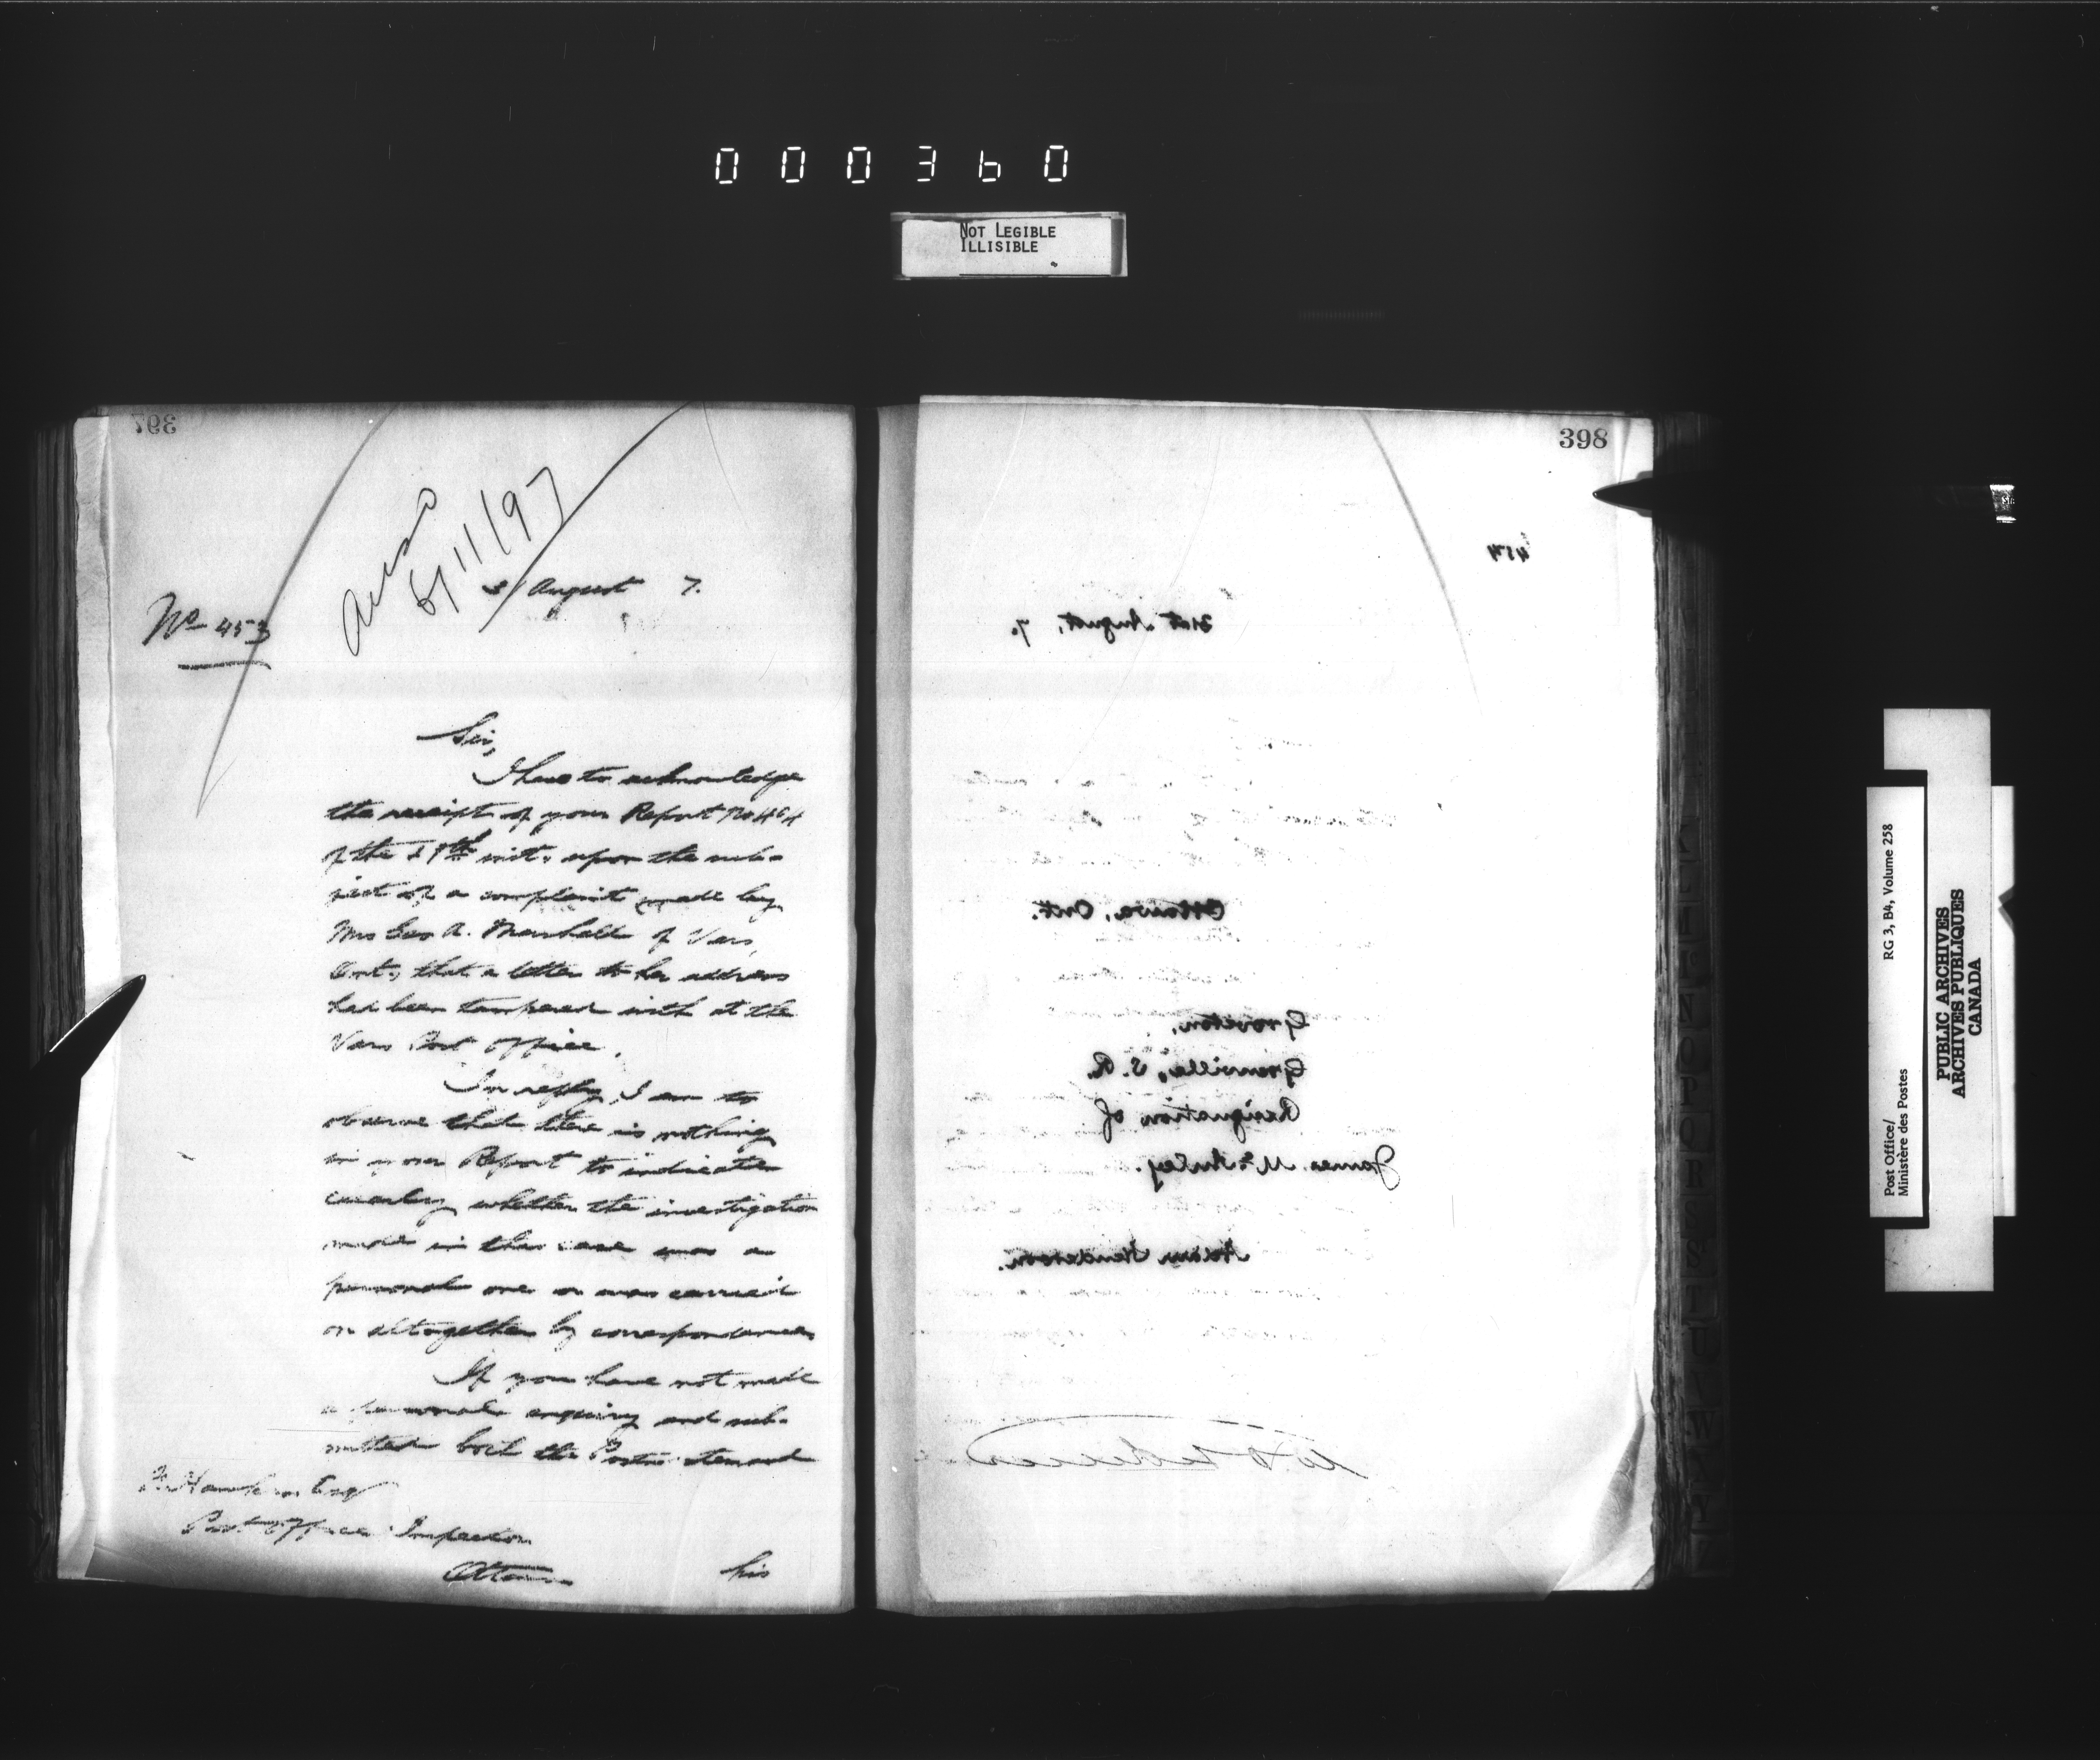 000360
NOT LEGIBLE
ILLISIBLE
397
August 7.
No 453
Sir,
I have to acknowledge
the receipt of your Report No 464
of the 27th inst. upon the sub-
ject of a complaint made by
Mrs Geo A. Marshall of Vars,
Ont., that a letter to her address
had been tampered with at the
Vars Post Office.
In reply, I am to
observe that there is nothing
in your Report to indicate
clearly whether the investigation
made in this case was a
personal one or was carried
on altogether by correspondence.
If you have not made
a personal enquiry and sub-
mitted both the Postmistress and
Esq
Post Office Inspector
Ottawa
his
398
454
31st August, 7.
Ottawa, Ont.
Groveton,
Grenville, S. R.
Resignation of
James McAuley.
Adam Henderson.
Post Office/
Ministère des Postes
RG 3, B4, Volume 258
PUBLIC ARCHIVES
ARCHIVES PUBLIQUES
CANADA